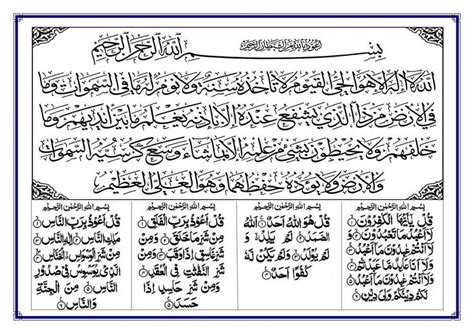 اعوذ بالله من الشيطان الرجيم
بسم الله الرحمن الرحيم
الله لا اله الا هو الحي القيوم لا تأخذه سنة ولا نوم له ما في السموات وما
في الارض من ذا الذي يشفع عنده الا باذنه يعلم ما بين ايديهم وما
خلفهم ولا يحيطون بشيء من علمه الا بما شاء وسع كرسيه السموات
والارض ولا يؤده حفظهما وهو العلي العظيم
بسم الله الرحمن الرحيم
قُلْ يٰٓاَيُّهَا الْكٰفِرُوْنَ
لَآ اَعْبُدُ مَا تَعْبُدُوْنَ
لَكُمْ دِيْنُكُمْ وَلِيَ دِيْنِ
بسم الله الرحمن الرحيم
قُلْ هُوَ اللّٰهُ اَحَدٌ اَللّٰهُ
الصَّمَدُ لَمْ يَلِدْ وَ
لَمْ يُوْلَدْ وَلَمْ يَكُنْ لَّهٗ
كُفُوًا اَحَدٌ
بسم الله الرحمن الرحيم
قُلْ اَعُوْذُ بِرَبِّ الْفَلَقِ
مِنْ شَرِّ مَا خَلَقَ وَمِنْ
شَرِّ غَاسِقٍ اِذَا وَقَبَ وَمِنْ
شَرِّ النَّفّٰثٰتِ فِي الْعُقَدِ
وَمِنْ شَرِّ حَاسِدٍ اِذَا
حَسَدَ
بسم الله الرحمن الرحيم
قُلْ اَعُوْذُ بِرَبِّ النَّاسِ
مَلِكِ النَّاسِ اِلٰهِ النَّاسِ
مِنْ شَرِّ الْوَسْوَاسِ الْخَنَّاسِ
الَّذِيْ يُوَسْوِسُ فِيْ صُدُوْرِ
النَّاسِ مِنَ الْجِنَّةِ
وَالنَّاسِ